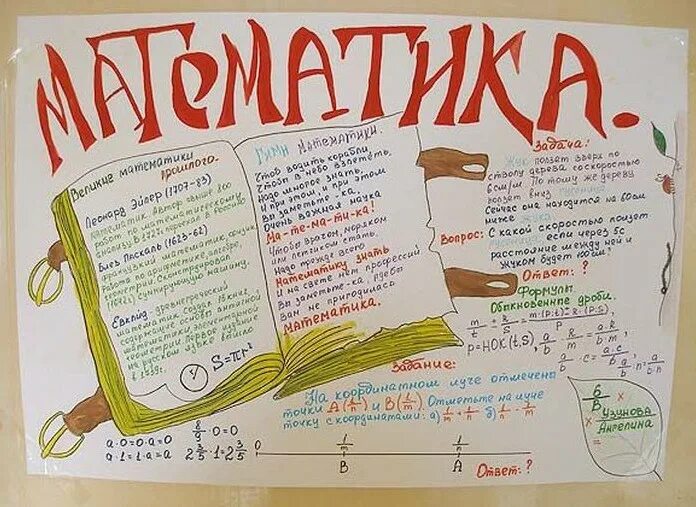 МАТЕМАТИКА.
Великие математики
прошлого.
Леонард Эйлер (1707-83)
математик. Автор свыше 800
работ по математическому
анализу. В 1727г. переехал в Россию
Блез Паскаль (1623-62)
французский математик, создал
работы по арифметике, алгебре,
геометрии. Сконструировал
(1642г) суммирующую машину.
Евклид древнегреческий
математик создал 13 книг,
содержащие основы античной
математики, элементарной
геометрии. Первое издание
на русском языке вышло
в 1739г.
S=πr²
Гимн математики.
Чтоб водить корабли,
Чтоб в небо взлететь,
Надо многое знать,
И при этом, и при этом
Вы заметьте-ка,
Очень важная наука
Ма-те-ма-ти-ка!
Чтобы врачом, моряком
или летчиком стать,
Надо прежде всего
Математику знать
И на свете нет профессий
Вы заметьте-ка, где бы
Вам не пригодилась
Математика.
Задача:
Жук ползет вверх по
стволу дерева со скоростью
6см/м. По тому же дереву
ползет вниз гусеница
Сейчас она находится на 60см
ниже жука
Вопрос: С какой скоростью ползет
гусеница если через 5с
расстояние между ней и
жуком будет 100см?
Ответ: ?
Формулы.
Обыкновенные дроби.
P=НОК(t,s),
Задание:
На координатном луче отмечены
точки A(1/n) и B(1/m). Отметьте на луче
точку с координатами: а) 1/m + 1/n б) 1/n - 1/m
a·0=0·a=0
a·1=1·a=a
8/9·0=0
2 3/5·1=2 3/5
0 1/m 1/n
B A
Ответ: ?
6
В
Узунова
Ангелина